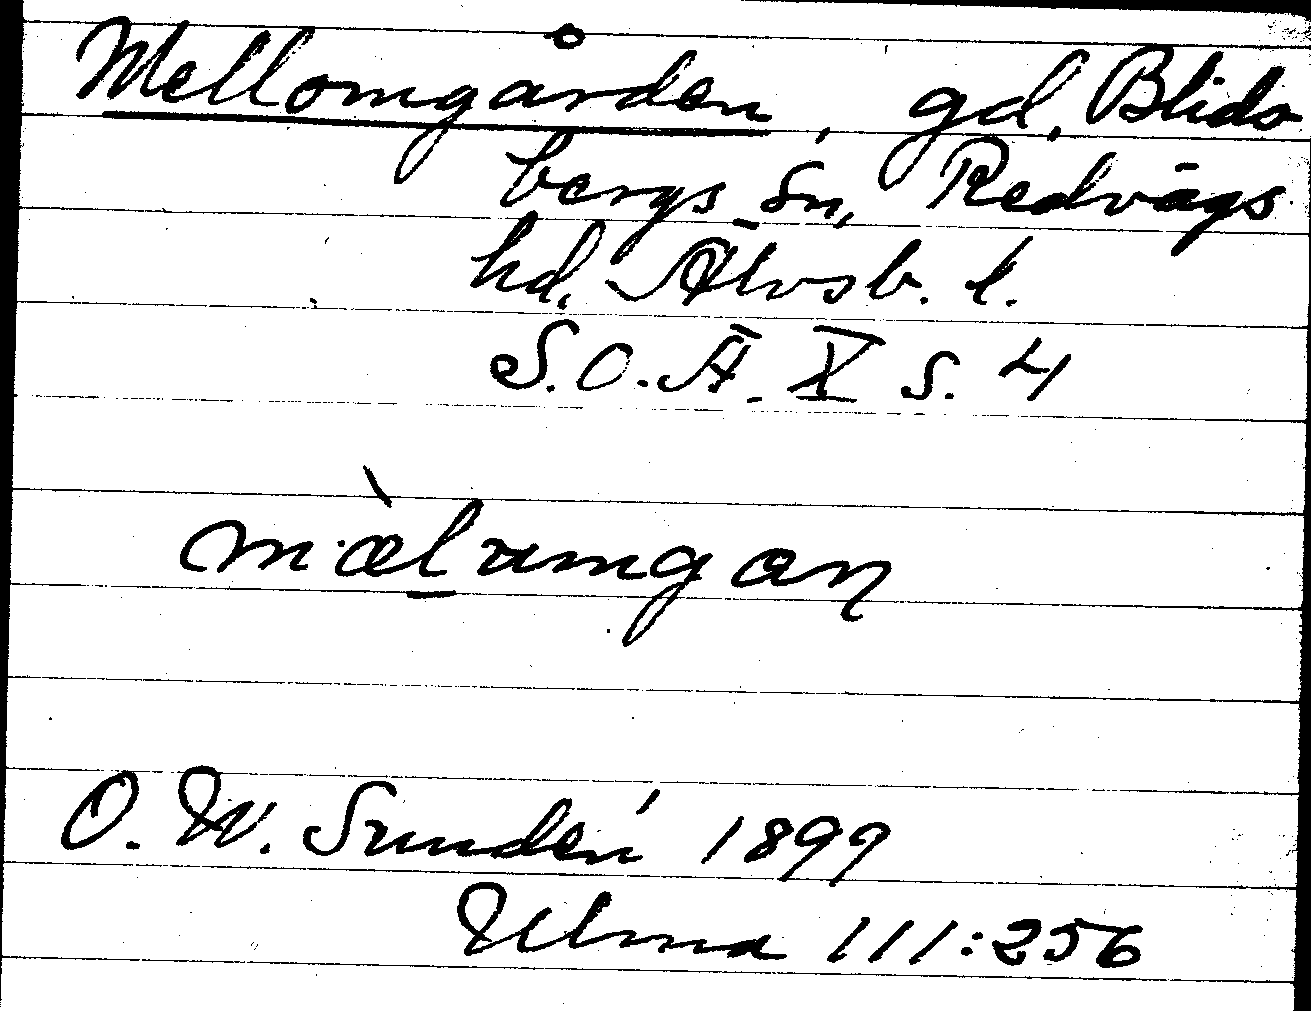 Mellomgården, gd, Blids-
bergs sn, Redvägs
hd. Älvsb. l.
S.O.Ä. X s. 4
mæ̀lumgan
O. W. Sundén 1899
Ulma 111:256